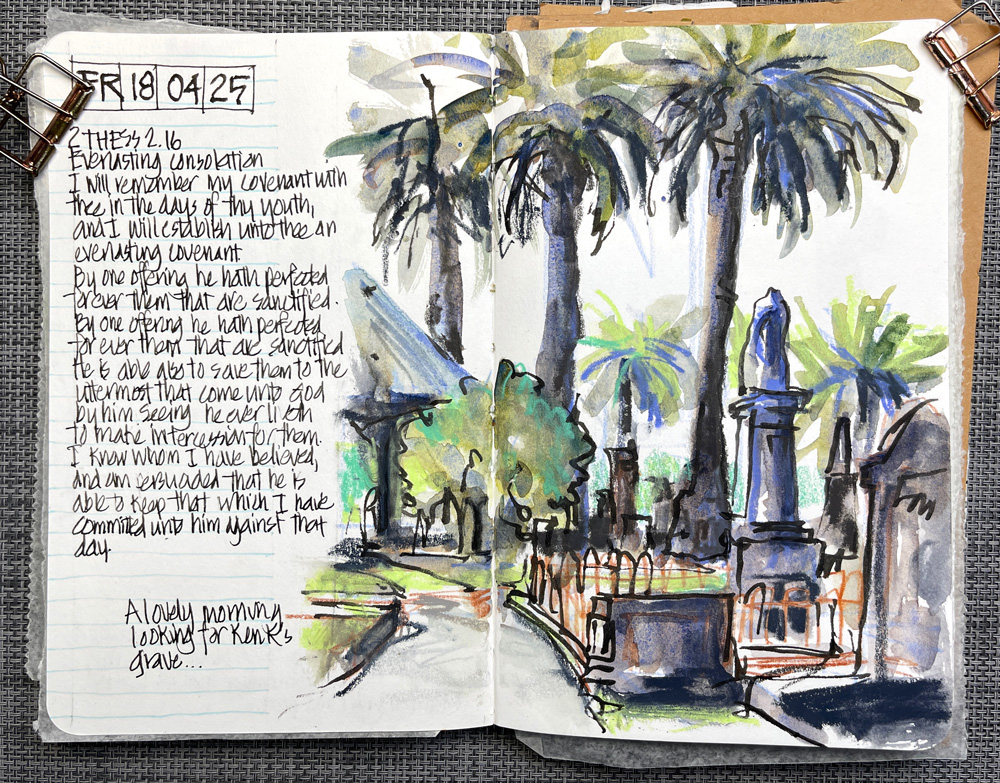 FR 18 04 25
2 THESS 2.16
Everlasting consolation
I will remember my covenant with
thee in the days of thy youth,
and I will establish unto thee an
everlasting covenant
By one offering he hath perfected
forever them that are sanctified.
By one offering he hath perfected
for ever them that are sanctified
He is able also to save them to the
uttermost that come unto God
by him seeing he ever liveth
to make intercession for them.
I know whom I have believed,
and am persuaded that he is
able to keep that which I have
committed unto him against that
day.
A lovely morning
looking for Ken K's
grave...